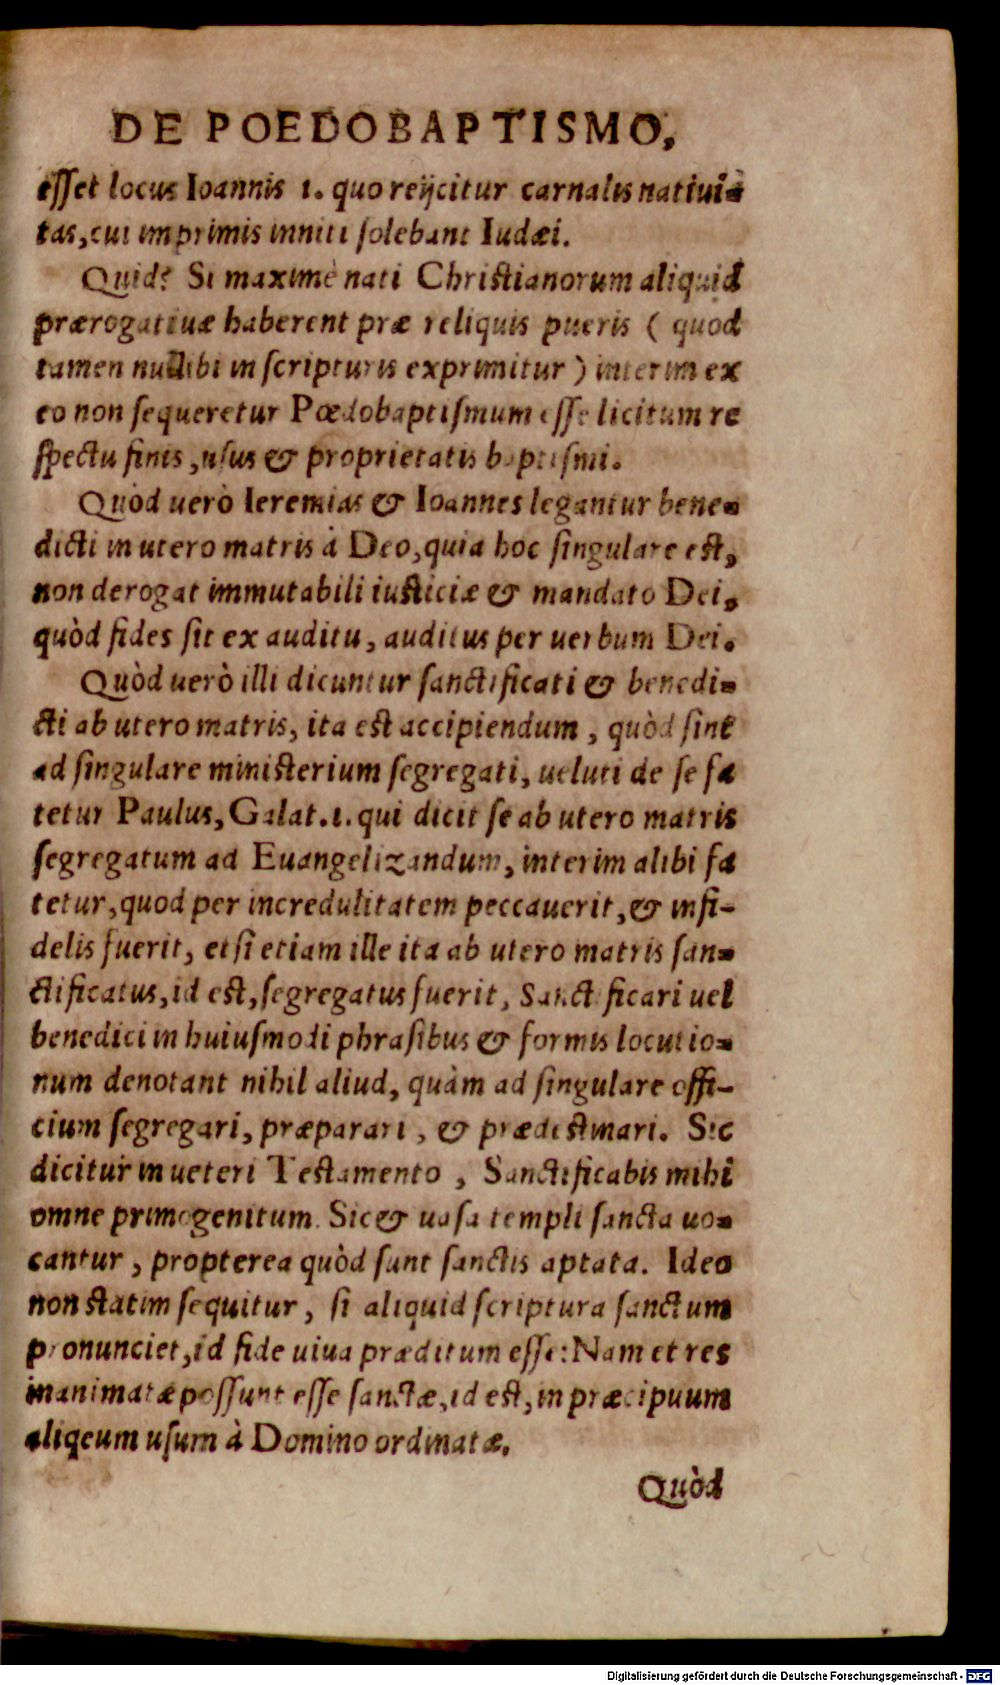 DE POEDOBAPTISMO,
eſſet locus Ioannis 1. quo reijcitur carnalis natiui-
tas, cui imprimis inniti ſolebant Iudæi.
Quid? Si maximè nati Chriſtianorum aliquid
prærogatiuæ haberent præ reliquis pueris ( quod
tamen nullibi in ſcripturis exprimitur ) interim ex
eo non ſequeretur Pœdobaptiſmum eſſe licitum re
ſpectu finis, uſus & proprietatis baptiſmi.
Quòd uerò Ieremias & Ioannes legantur bene-
dicti in utero matris à Deo, quia hoc ſingulare eſt,
non derogat immutabili iuſticiæ & mandato Dei,
quòd fides ſit ex auditu, auditus per uerbum Dei.
Quòd uerò illi dicuntur ſanctificati & benedi-
cti ab utero matris, ita eſt accipiendum, quòd ſint
ad ſingulare miniſterium ſegregati, ueluti de ſe fa
tetur Paulus, Galat. 1. qui dicit ſe ab utero matris
ſegregatum ad Euangelizandum, interim alibi fa
tetur, quod per incredulitatem peccauerit, & infi-
delis fuerit, etſi etiam ille ita ab utero matris ſan-
ctificatus, id eſt, ſegregatus fuerit, Sanctificari uel
benedici in huiuſmodi phraſibus & formis locutio-
num denotant nihil aliud, quàm ad ſingulare offi-
cium ſegregari, præparari, & prædeſtinari. Sic
dicitur in ueteri Teſtamento, Sanctificabis mihi
omne primogenitum. Sic & uaſa templi ſancta uo-
cantur, propterea quòd ſunt ſanctis aptata. Ideo
non ſtatim ſequitur, ſi aliquid ſcriptura ſanctum
pronunciet, id fide uiua præditum eſſe: Nam et res
inanimatæ poſſunt eſſe ſanctæ, id eſt, in præcipuum
aliqeum uſum à Domino ordinatæ.
Quòd
Digitalisierung gefördert durch die Deutsche Forschungsgemeinschaft - DFG